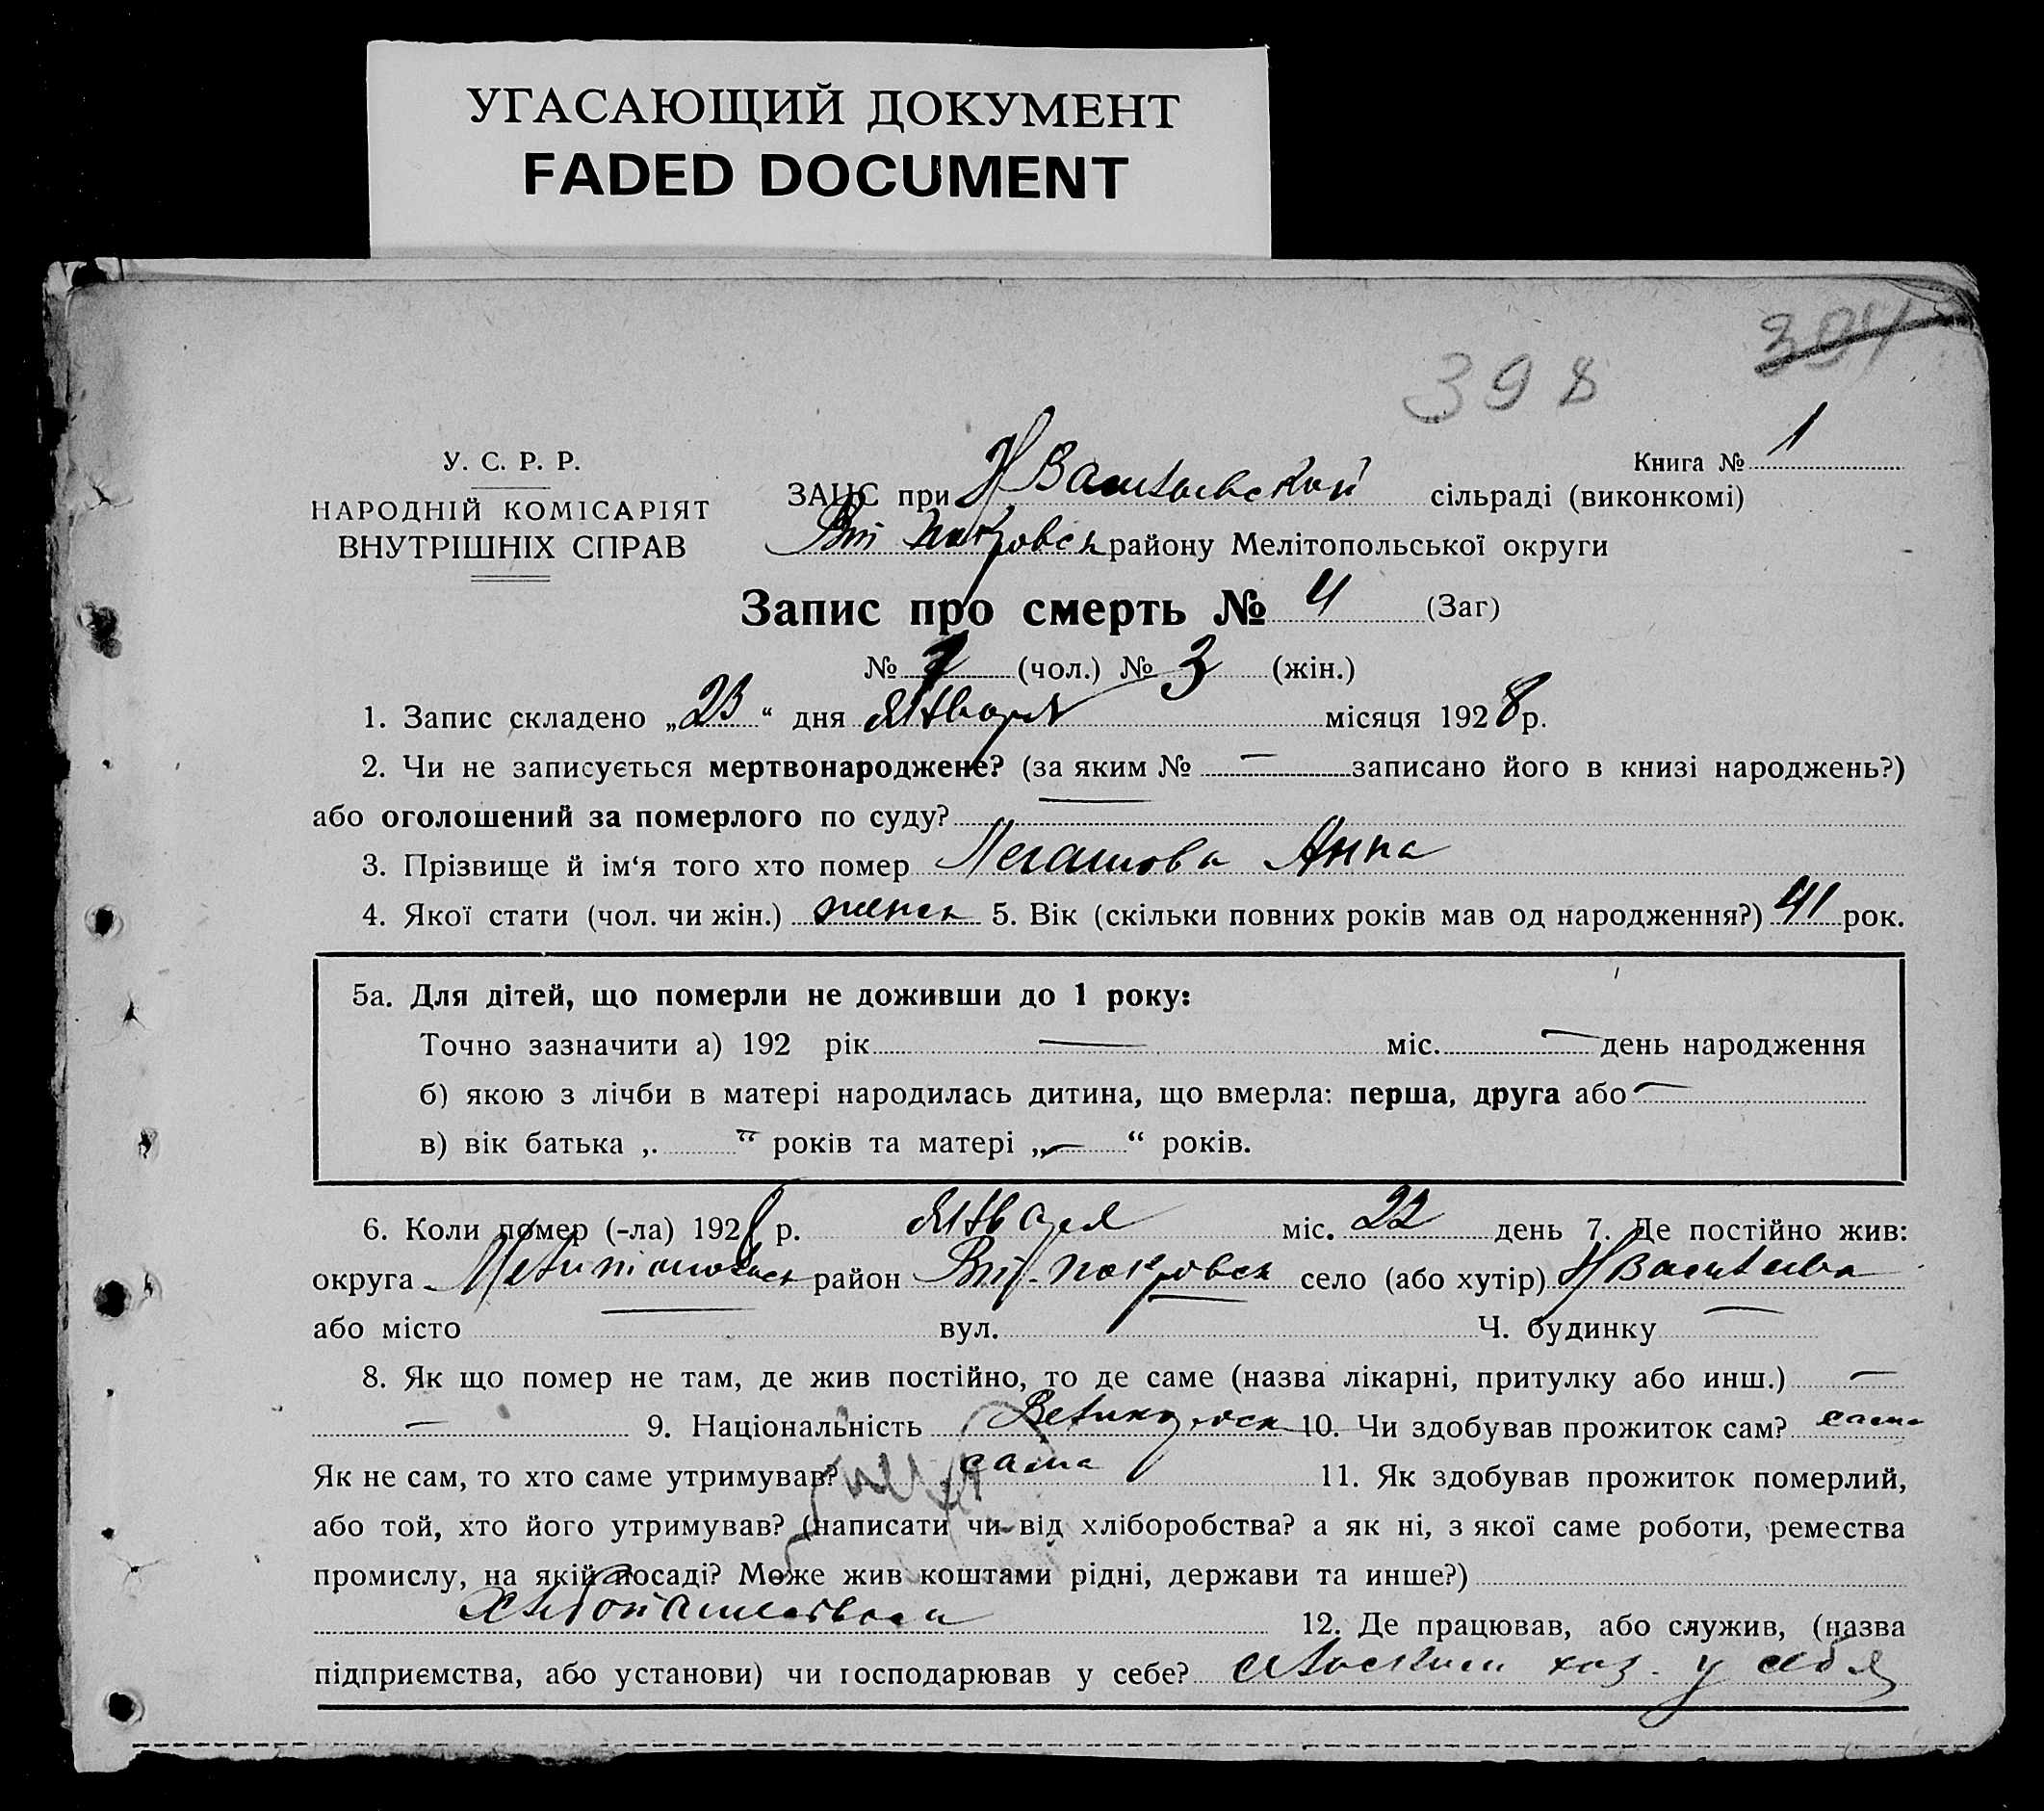 УГАСАЮЩИЙ ДОКУМЕНТ
FADED DOCUMENT
304
398
У. С. Р. Р.
НАРОДНІЙ КОМІСАРІЯТ
ВНУТРІШНІХ СПРАВ
Книга № 1
ЗАЦС при Н Васильевской сільраді (виконкомі)
Вт Покровск району Мелітопольської округи
Запис про смерть № 4 (Заг)
№ (чол.) № 3 (жін.)
1. Запис складено „23“ дня Января місяця 1928 р.
2. Чи не записується мертвонароджене? (за яким № — записано його в книзі народжень?)
або оголошений за померлого по суду? —
3. Прізвище й ім‘я того хто помер Анна
4. Якої стати (чол. чи жін.) женск 5. Вік (скільки повних років мав од народження?) 41 рок.
5а. Для дітей, що померли не доживши до 1 року:
Точно зазначити а) 192 рік — міс. — день народження
б) якою з лічби в матері народилась дитина, що вмерла: перша, друга або —
в) вік батька „ — “ років та матері „ — “ років.
6. Коли помер (-ла) 1928 р. Января міс. 22 день 7. Де постійно жив:
округа Мелитопольск район Вт-Покровск село (або хутір) Н Васильевка
або місто — вул. — Ч. будинку —
8. Як що помер не там, де жив постійно, то де саме (назва лікарні, притулку або инш.) —
— 9. Національність Великороск 10. Чи здобував прожиток сам? сама
Як не сам, то хто саме утримував? сама 11. Як здобував прожиток померлий,
або той, хто його утримував? (написати чи від хліборобства? а як ні, з якої саме роботи, ремества
промислу, на якій посаді? Може жив коштами рідні, держави та инше?)
Хлебопашества 12. Де працював, або служив, (назва
підприємства, або установи) чи господарював у себе? сельским хоз. у себя